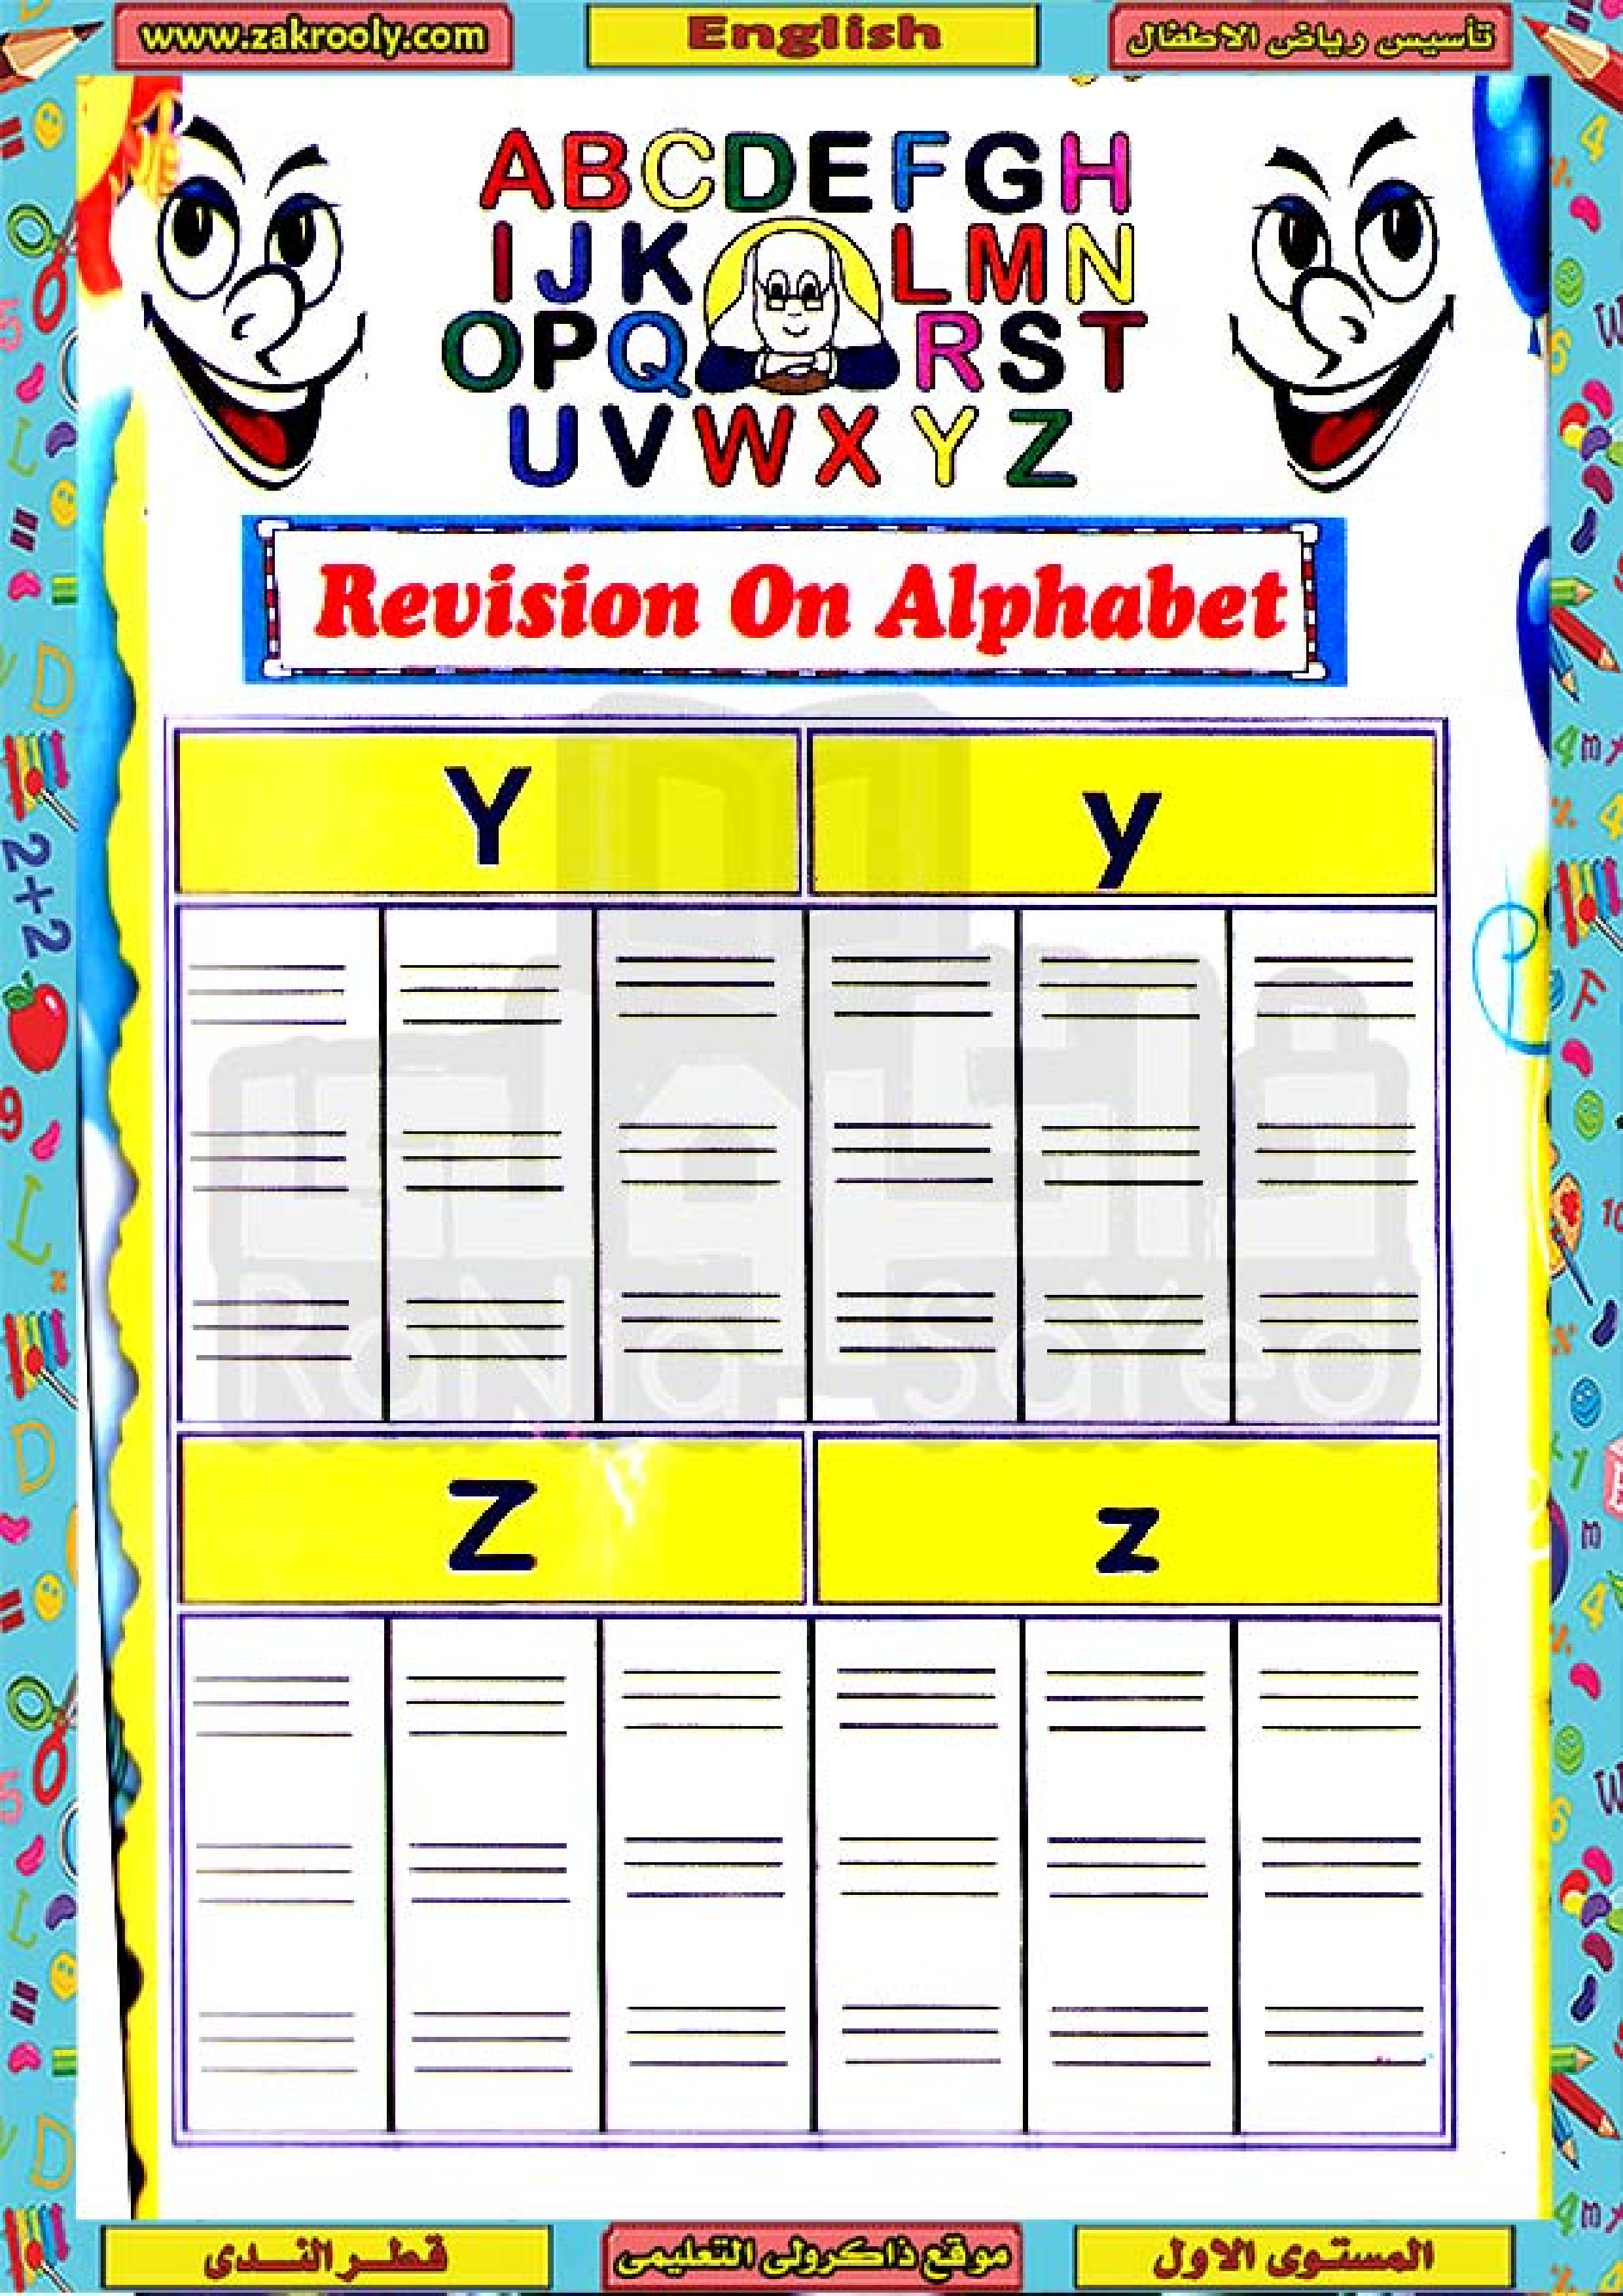 www.zakrooly.com
English
تأسيس رياض الاطفال
ABCDEFGH
IJK LMN
OPQ RST
UVWXYZ
Revision On Alphabet
Y y
RaNia SaYed
Z z
قطر الندى
موقع ذاكرولى التعليمى
المستوى الاول